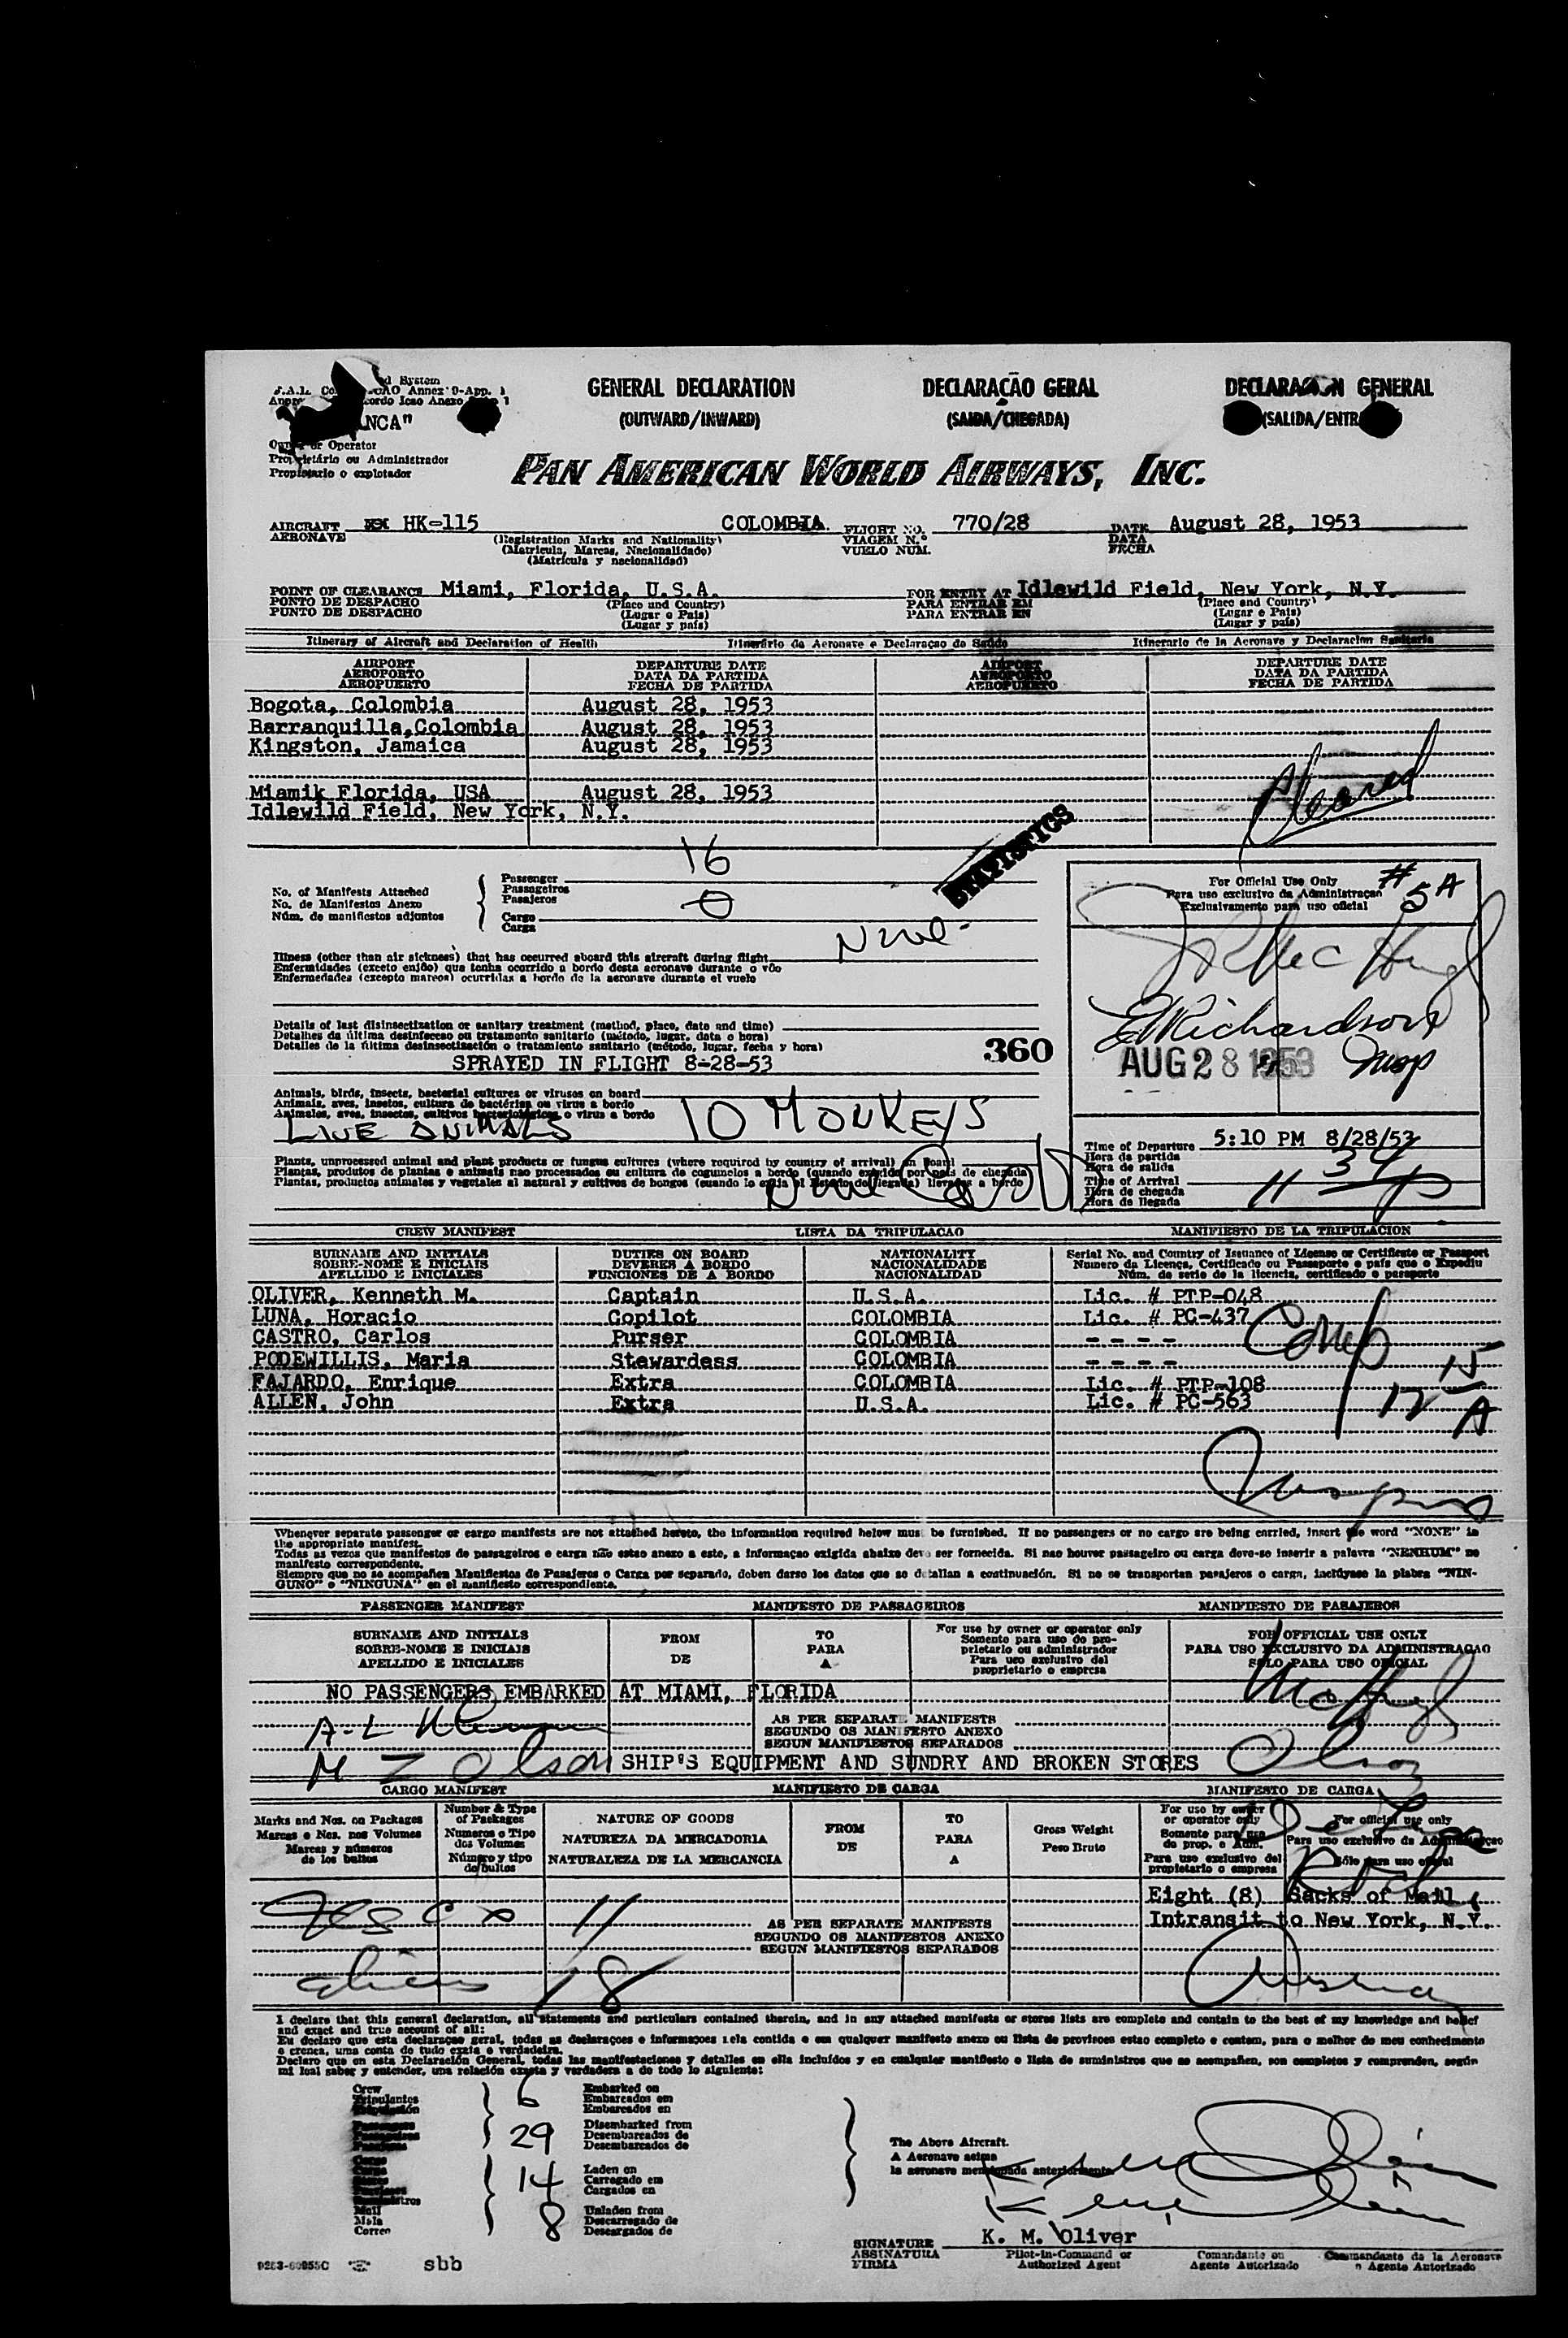 d System
F.A.L. CAO Annex 9-App. 1
cordo Icao Anexo 1
NCA"
Owner or Operator
Proprietário ou Administrador
Propietario o explotador
GENERAL DECLARATION DECLARAÇÃO GERAL DECLARACION GENERAL
(OUTWARD/INWARD) (SAIDA/CHEGADA) (SALIDA/ENTR
PAN AMERICAN WORLD AIRWAYS, INC.
AIRCRAFT HK-115 COLOMBIA FLIGHT NO. 770/28 DATE August 28, 1953
AERONAVE (Registration Marks and Nationality) VIAGEM N.° DATA
(Matricula, Marcas, Nacionalidade) VUELO NUM. FECHA
(Matricula y nacionalidad)
POINT OF CLEARANCE Miami, Florida, U.S.A. FOR ENTRY AT Idlewild Field, New York, N.Y.
PONTO DE DESPACHO (Place and Country) PARA ENTRAR EM (Place and Country)
PUNTO DE DESPACHO (Lugar e Pais) PARA ENTRAR EN (Lugar e Pais)
(Lugar y país) (Lugar y país)
Itinerary of Aircraft and Declaration of Health Itinerário da Aeronave e Declaraçao de Saúde Itinerario de la Aeronave y Declaracion Sanitaria
AIRPORT DEPARTURE DATE AIRPORT DEPARTURE DATE
AEROPORTO DATA DA PARTIDA AEROPORTO DATA DA PARTIDA
AEROPUERTO FECHA DE PARTIDA AEROPUERTO FECHA DE PARTIDA
Bogota, Colombia August 28, 1953
Barranquilla,Colombia August 28, 1953
Kingston, Jamaica August 28, 1953
Miamik Florida, USA August 28, 1953
Idlewild Field, New York, N.Y.
Cleared
STATISTICS
No. of Manifests Attached Passenger 16
No. de Manifestos Anexo Passageiros
Núm. de manifiestos adjuntos Pasajeros 0
Cargo
Carga
For Official Use Only # 5A
Para uso exclusivo da Administraçao
Exclusivamente para uso oficial
Illness (other than air sickness) that has occurred aboard this aircraft during flight None
Enfermidades (exceto enjôo) que tenha ocorrido a bordo desta aeronave durante o vôo
Enfermedades (excepto mareos) ocurridas a bordo de la aeronave durante el vuelo
E Richardson
Insp
AUG 28 1953
Details of last disinsectization or sanitary treatment (method, place, date and time)
Detalhes da última desinfeccao ou tratamento sanitario (método, lugar, data o hora)
Detalles de la última desinsectización o tratamiento sanitario (método, lugar, fecha y hora)
SPRAYED IN FLIGHT 8-28-53 360
Animals, birds, insects, bacterial cultures or viruses on board
Animais, aves, insetos, cultura de bactérias ou virus a bordo
Animales, aves, insectos, cultivos bacteriológicos o virus a bordo
LIVE ANIMALS 10 MONKEYS
Plants, unprocessed animal and plant products or fungus cultures (where required by country of arrival) on board
Plantas, produtos de plantas e animais nao processados ou cultura de cogumelos a bordo (quando exigido por pais de chegada)
Plantas, productos animales y vegetales al natural y cultivos de hongos (cuando lo exija el Estado de llegada) llevados a bordo
Time of Departure 5:10 PM 8/28/53
Hora da partida
Hora de salida
Time of Arrival 11 34 p
Hora de chegada
Hora de llegada
CREW MANIFEST LISTA DA TRIPULACAO MANIFIESTO DE LA TRIPULACION
SURNAME AND INITIALS DUTIES ON BOARD NATIONALITY Serial No. and Country of Issuance of License or Certificate or Passport
SOBRE-NOME E INICIAIS DEVERES A BORDO NACIONALIDADE Numero da Licença, Certificado ou Passaporte e país que o Expediu
APELLIDO E INICIALES FUNCIONES DE A BORDO NACIONALIDAD Núm. de serie de la licencia, certificado o pasaporte
OLIVER, Kenneth M. Captain U.S.A. Lic. # PTP-048
LUNA, Horacio Copilot COLOMBIA Lic. # PC-437
CASTRO, Carlos Purser COLOMBIA - - - -
PODEWILLIS, Maria Stewardess COLOMBIA - - - -
FAJARDO, Enrique Extra COLOMBIA Lic. # PTP-108
ALLEN, John Extra U.S.A. Lic. # PC-563
15
12 A
Whenever separate passenger or cargo manifests are not attached hereto, the information required below must be furnished. If no passengers or no cargo are being carried, insert the word "NONE" in
the appropriate manifest.
Todas as vezos que manifestos de passageiros e carga não estao anexo a esto, a informaçao exigida abaixo deve ser fornecida. Si nao houver passageiro ou carga deve-se inserir a palavra "NENHUM" no
manifesto correspondente.
Siempre que no se acompañen Manifiestos de Pasajeros o Carga por separado, deben darse los datos que se detallan a continuación. Si no se transportan pasajeros o carga, inclúyase la plabra "NIN-
GUNO" o "NINGUNA" en el manifiesto correspondiente.
PASSENGER MANIFEST MANIFESTO DE PASSAGEIROS MANIFIESTO DE PASAJEROS
SURNAME AND INITIALS FROM TO For use by owner or operator only FOR OFFICIAL USE ONLY
SOBRE-NOME E INICIAIS DE PARA Somente para uso do pro- PARA USO EXCLUSIVO DA ADMINISTRAÇAO
APELLIDO E INICIALES A prietario ou administrador SOLO PARA USO OFICIAL
Para uso exclusivo del
proprietario o empresa
NO PASSENGERS EMBARKED AT MIAMI, FLORIDA
AS PER SEPARATE MANIFESTS
SEGUNDO OS MANIFESTO ANEXO
SEGUN MANIFIESTOS SEPARADOS
M Z Olson SHIP'S EQUIPMENT AND SUNDRY AND BROKEN STORES Olson
CARGO MANIFEST MANIFIESTO DE CARGA MANIFESTO DE CARGA
Marks and Nos. on Packages Number & Type of Packages NATURE OF GOODS FROM TO Gross Weight For use by owner or operator only For official use only
Marcas e Nos. nos Volumes Numeros o Tipo dos Volumes NATUREZA DA MERCADORIA DE PARA Peso Bruto Somente para uso de prop. e Adm. Para uso exclusivo da Administraçao
Marcas y números de los bultos Número y tipo de bultos NATURALEZA DE LA MERCANCIA A Para uso exclusivo del propietario o empresa Sólo para uso oficial
Eight (8) Sacks of Mail
11 Intransit to New York, N.Y.
AS PER SEPARATE MANIFESTS
SEGUNDO OS MANIFESTOS ANEXO
SEGUN MANIFIESTOS SEPARADOS
aliens 18
I declare that this general declaration, all statements and particulars contained therein, and in any attached manifests or stores lists are complete and contain to the best of my knowledge and belief
and exact and true account of all:
Eu declaro que esta declaraçao geral, todas as declaraçoes e informacoes nela contida e em qualquer manifesto anexo ou lista de provisoes estao completo e contem, para o melhor de meu conhecimento
e crenca, uma conta de tudo exata e verdadeira.
Declaro que en esta Declaración General, todas las manifestaciones y detalles en ella incluidos y en cualquier manifiesto o lista de suministros que se acompañen, son completos y comprenden, según
mi leal saber y entender, una relación exacta y verdadera a de todo lo siguiente:
Crew 6 Embarked on
Tripulantes Embarcados em
Embarcados en
29 Disembarked from
Desembarcados de
Desembarcados de
The Above Aircraft.
A Aeronave acima
la aeronave mencionada anteriormente
14 Laden on
Carregado em
Cargados en
Mail 8 Unladen from
Mala Descarregado de
Correo Descargados de
SIGNATURE K. M. Oliver
ASSINATURA Pilot-in-Command or Comandante ou Commandante de la Aeronave
FIRMA Authorized Agent Agente Autorizado o Agente Autorizado
sbb